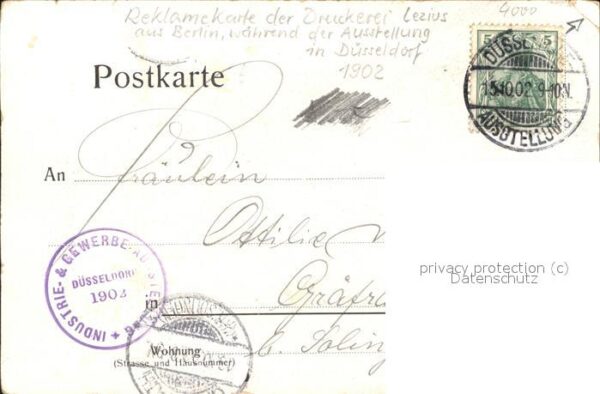 Reklamekarte der Druckerei Lezius
aus Berlin, während der Ausstellung
in Düsseldorf
1902
4000
Postkarte
5 5
DÜSSEL
15.10.02 9-10N.
AUSSTELLUNG d
An Fräulein
Ottilie
INDUSTRIE- & GEWERBE-AUSSTE
DÜSSELDORF
1902
in Gräfr
b. Solin
Wohnung
(Strasse und Hausnummer)
privacy protection (c)
Datenschutz